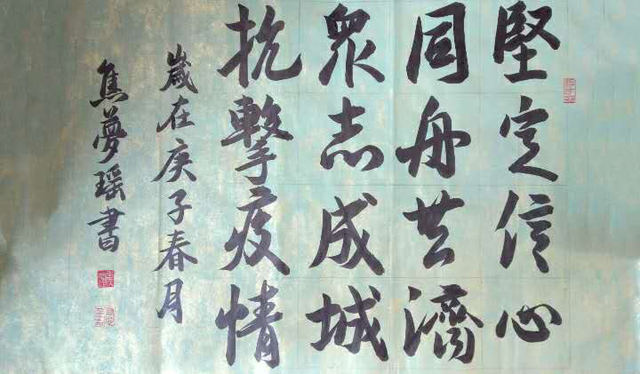 堅定信心
同舟共濟
眾志成城
抗擊疫情
歲在庚子春月
焦夢瑶書